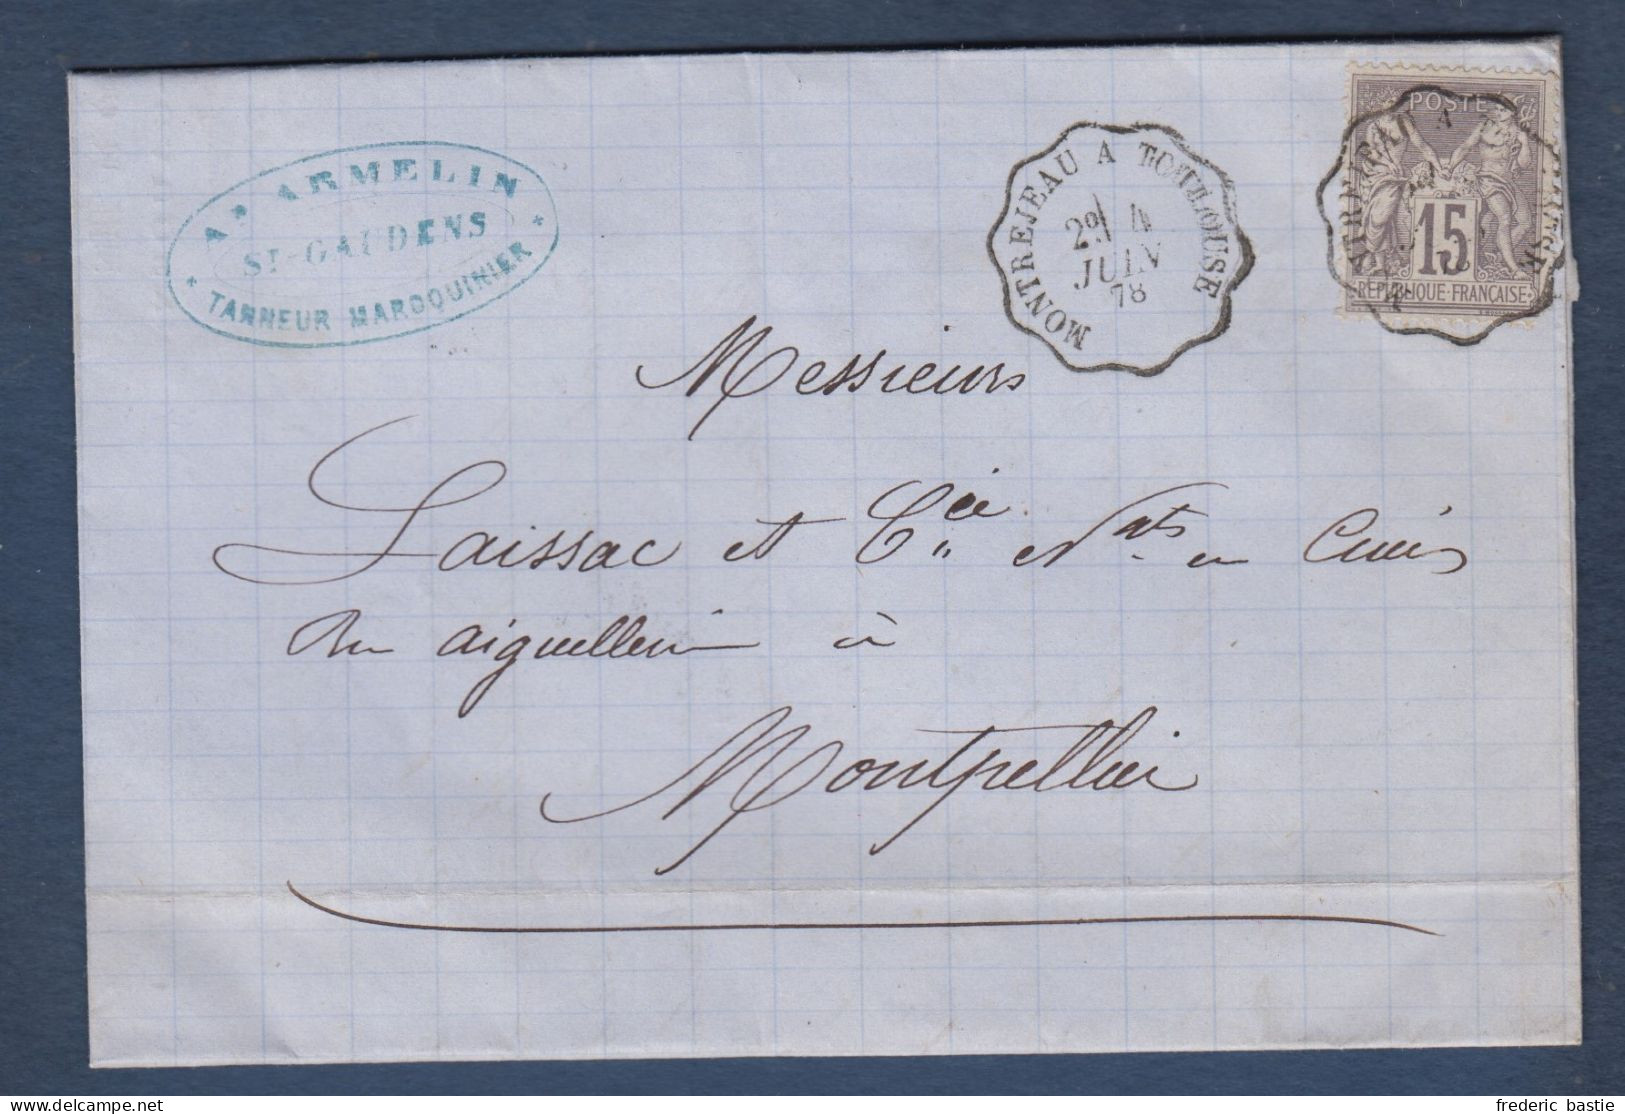 AD ARMELIN
ST-GAUDENS
TANNEUR MAROQUINIER
MONTREJEAU A TOULOUSE
2° 4
JUIN
78
POSTE
15
REPUBLIQUE FRANÇAISE
Messieurs
Laissac et Cie Nts en Cuirs
Rue aiguillerie à
Montpellier
frederic bastie